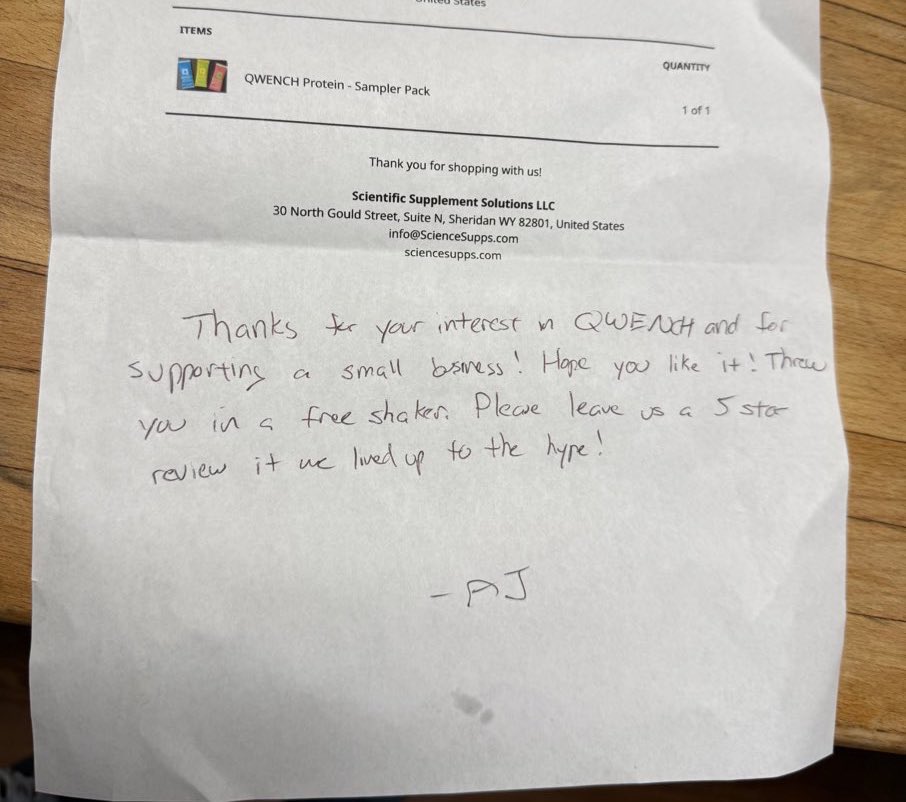 United States
ITEMS
QUANTITY
QWENCH Protein - Sampler Pack
1 of 1
Thank you for shopping with us!
Scientific Supplement Solutions LLC
30 North Gould Street, Suite N, Sheridan WY 82801, United States
info@ScienceSupps.com
sciencesupps.com
Thanks for your interest in QWENCH and for
supporting a small business! Hope you like it! Threw
you in a free shaker. Please leave us a 5 star
review if we lived up to the hype!
- AJ